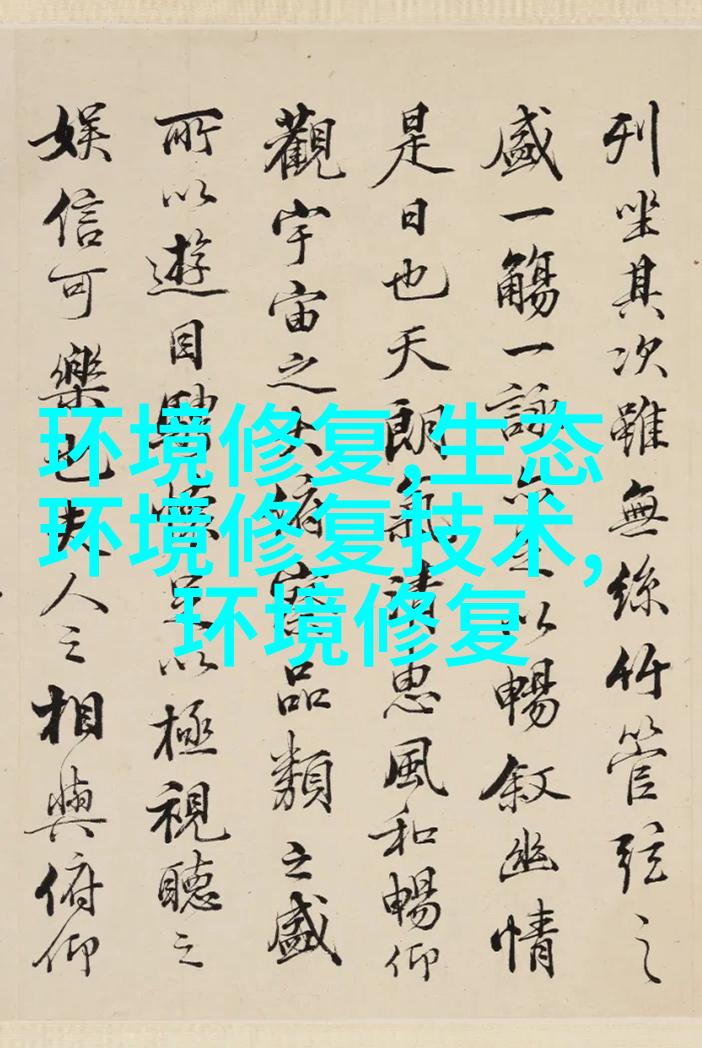 列坐其次雖無絲竹管弦之
盛一觴一詠亦足以暢叙幽情
是日也天朗氣清惠風和暢仰
觀宇宙之大俯察品類之盛
所以遊目騁懷足以極視聽之
娛信可樂也夫人之相與俯仰
环境修复,生态
环境修复技术,
环境修复